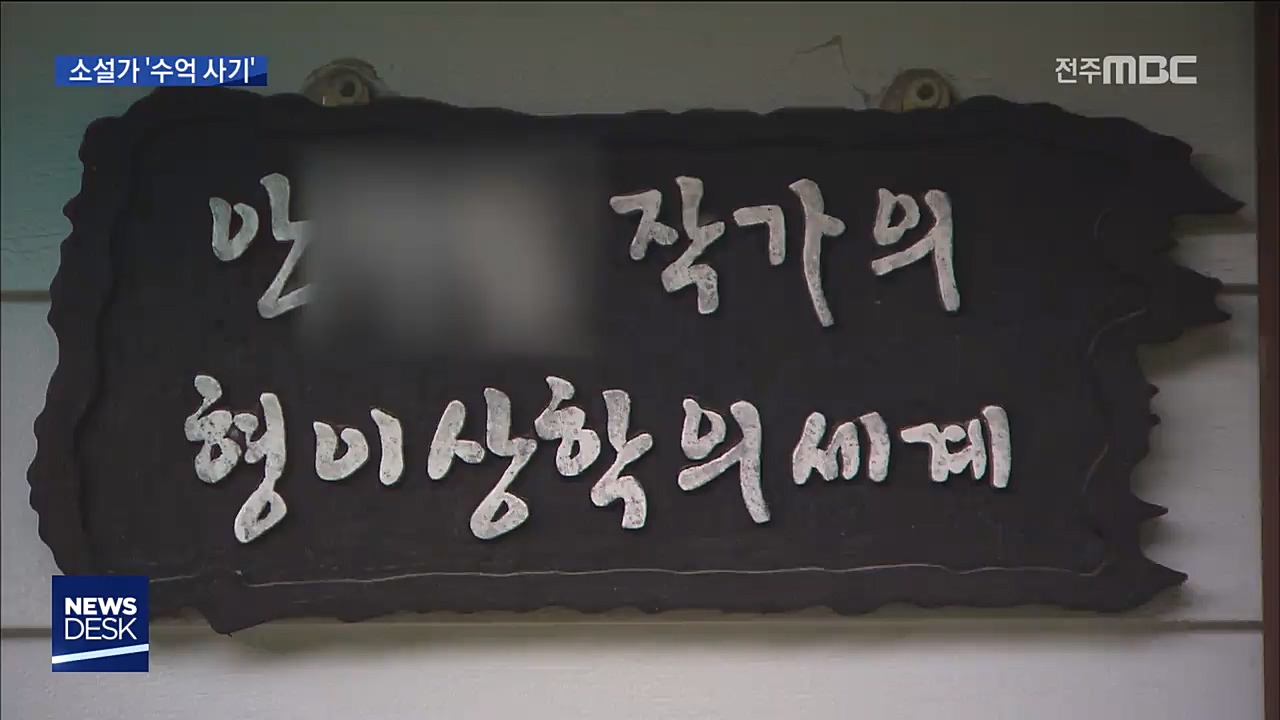 소설가 '수억 사기'
전주MBC
안 작가의
형이상학의 세계
NEWS
DESK